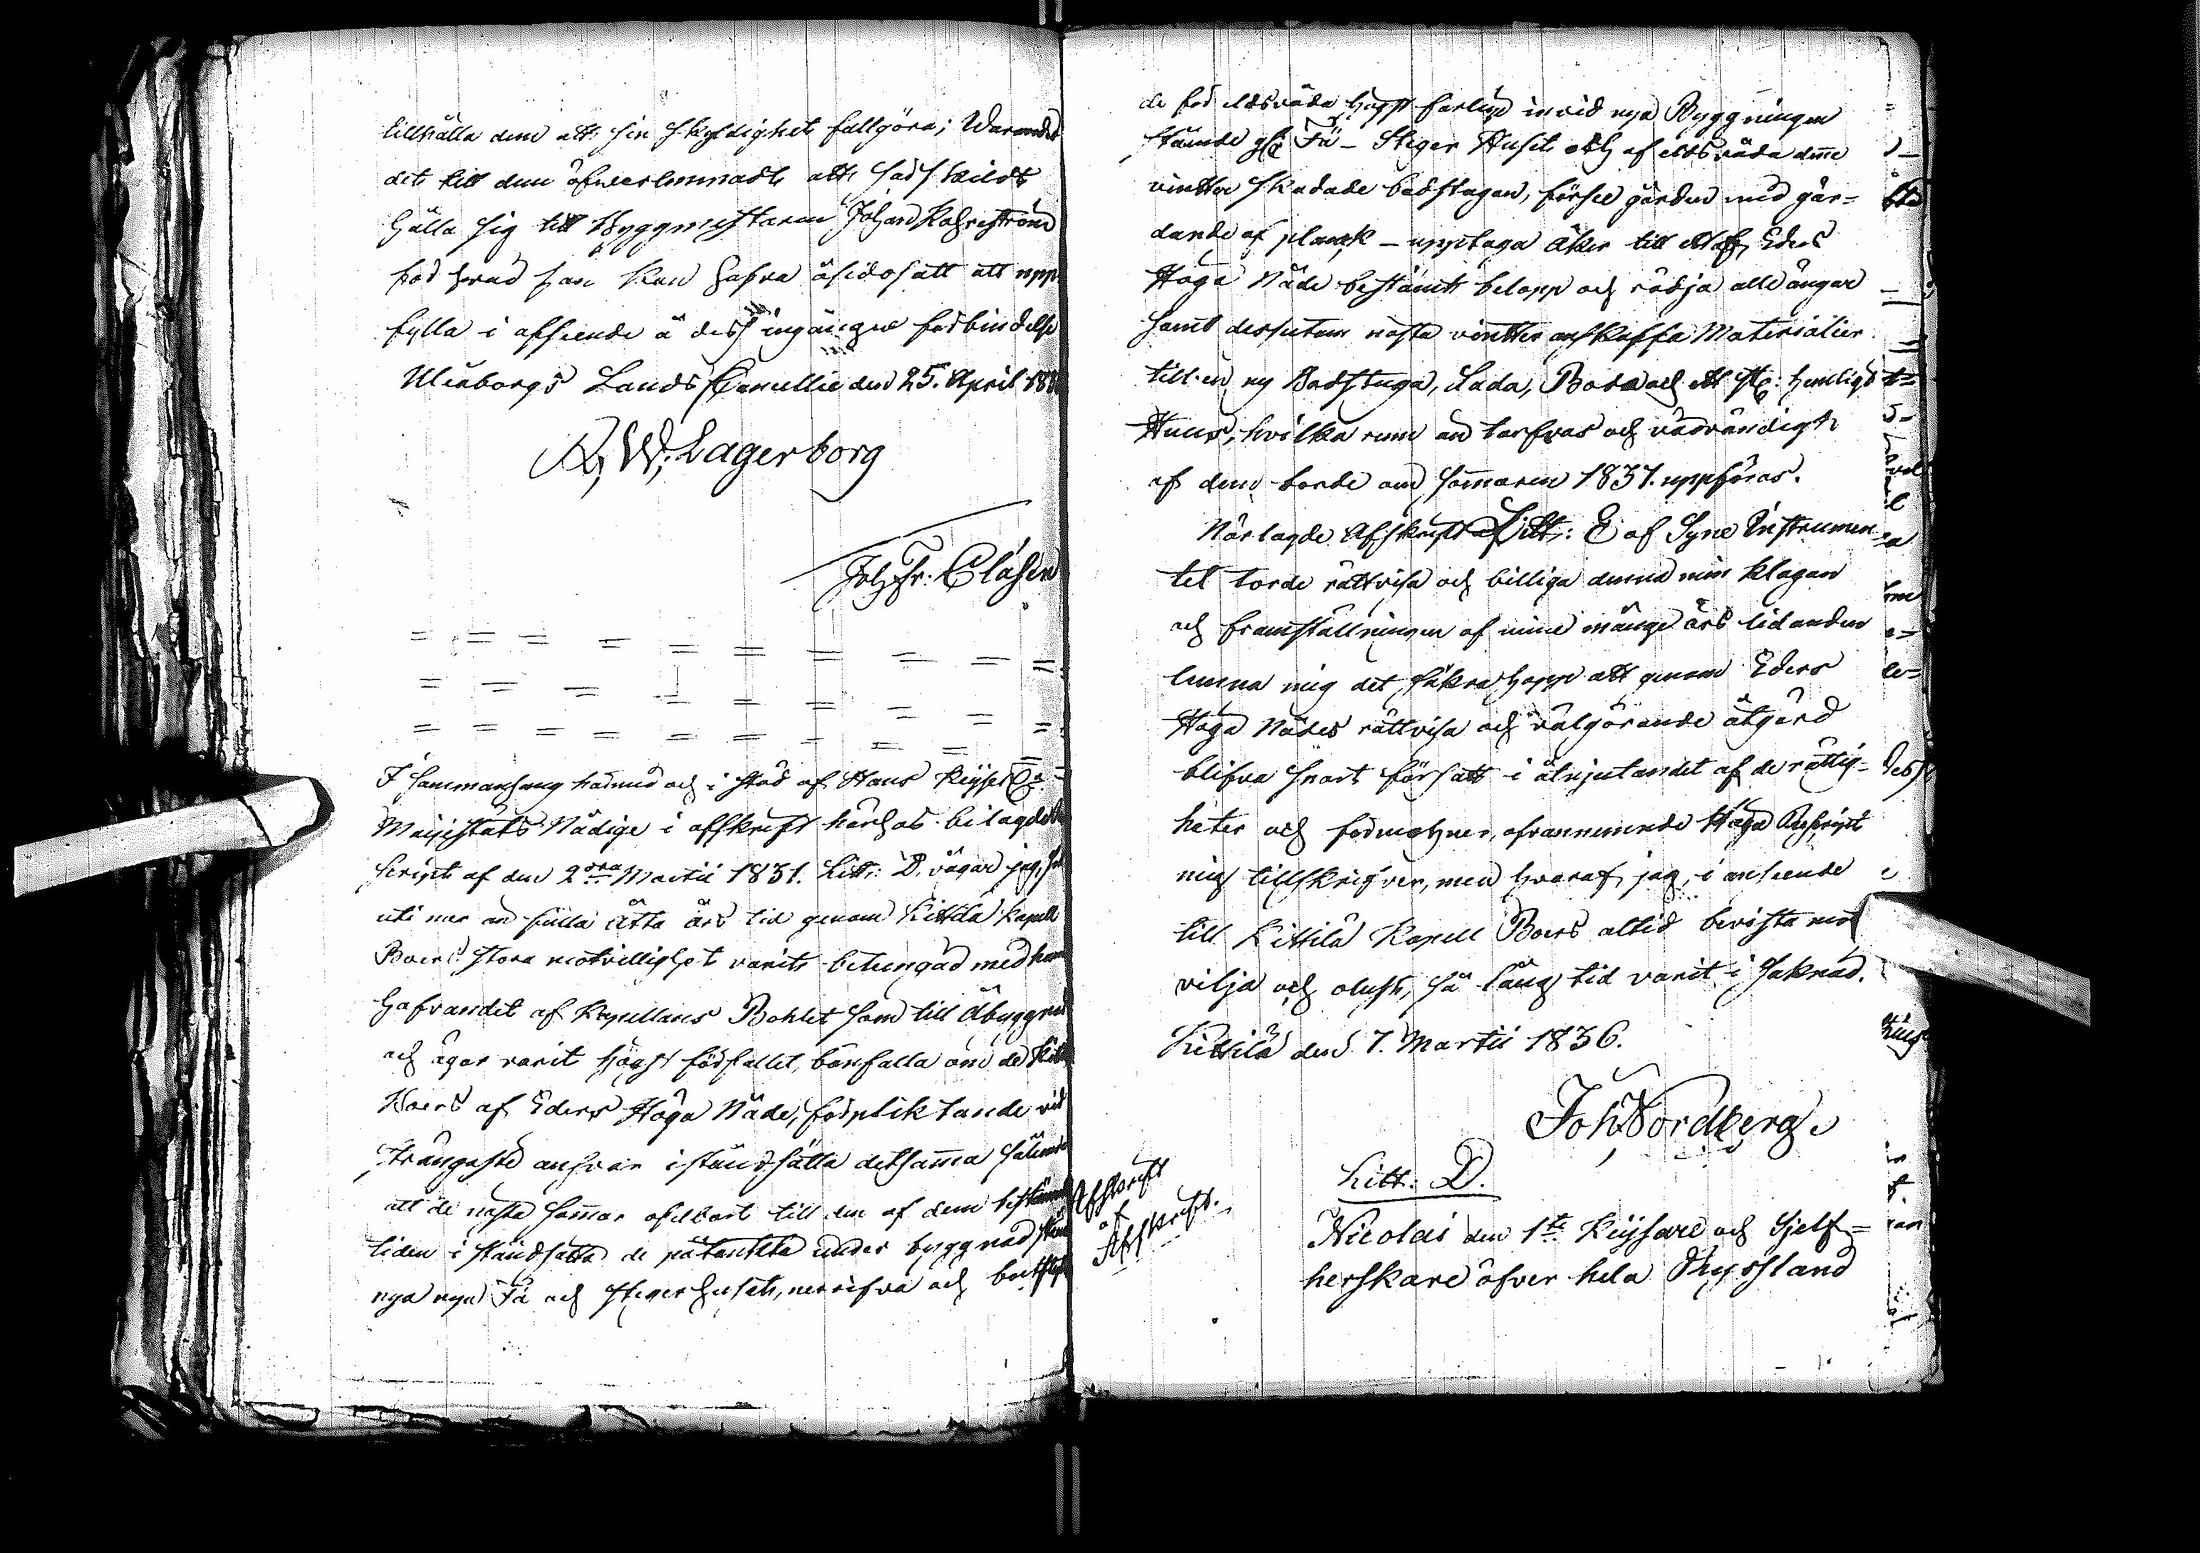 tillhålla dem att sin skyldighet fullgöra; Warandes
det till dem öfwerlemnadt att särskildt
hålla sig till Byggmästaren Johan Kahreström
för hvad han kan hafva åsidosatt att upp
fylla i afseende å dess ingångne förbindelse
Uleåborgs Lands Cancellie den 25. April 18
R. W. Lagerborg
Joh. Fr: Clasen
I sammanhang härmed och i stöd af Hans Keijserl:
Majestäts Nådige i afskrift härhos bilagde
script af den 2dra Martii 1831. Litt: D. vågar jag, som
uti mer än fulla åtta års tid genom Kittilä Kapell
Boers stora motvillighet varit betungad med
hafvandet af Kapellans Bohlet som till åbyggnad
och ägor varit högst förfallet, bönfalla om de
Boers af Eders Höga Nåde, förpliktande vid
strängaste ansvar iståndsätta detsamma sålunda
att de nästa sommar ofelbart till den af dem bestämde
tiden i ståndsätta de påtänkta under byggnad
nya nya Fä och Steger huset, nerrifva och
de för eldsvåda högst farligt invid nya Byggningen
stående gla Fä - Steger Huset och af eldsvåda denne
vintter skadade badstugan, förse gården med gär=
dande af plank - upptaga åker till ett af Eders
Höga Nåde bestämt belopp och rödja alla ängar
samt dessutom nästa vintter anskaffa Materialier
till en ny Badstuga, Lada, Boda och ett sk: hemligt
Huus, hvilka rum än tarfvas och nödvändigt
af dem borde om sommaren 1837. uppföras.
Närlagde Afskrift Litt: E af Syne Instrumen=
tet torde rättvisa och billiga denna min klagan
och framställningen af mine många års lidanden
lemna mig det säkra hopp att genom Eders
Höga Nådes rättvisa och välgörande åtgärd
blifva snart försatt i åtnjutandet af de rättig=
heter och förmohner, ofvannemnde Höga Rescript
mig tillskrifver, men hvaraf jag, i anseende
till Kittilä Kapell Boers altid bevista mot
vilja och olust, så lång tid varit i saknad.
Kittilä den 7. Martii 1836.
Joh. Nordberg.
Litt: D.
Afskrift
af
Afskrift.
Nicolai den 1te Keijsare och Sjelf=
herskare öfver hela Ryssland